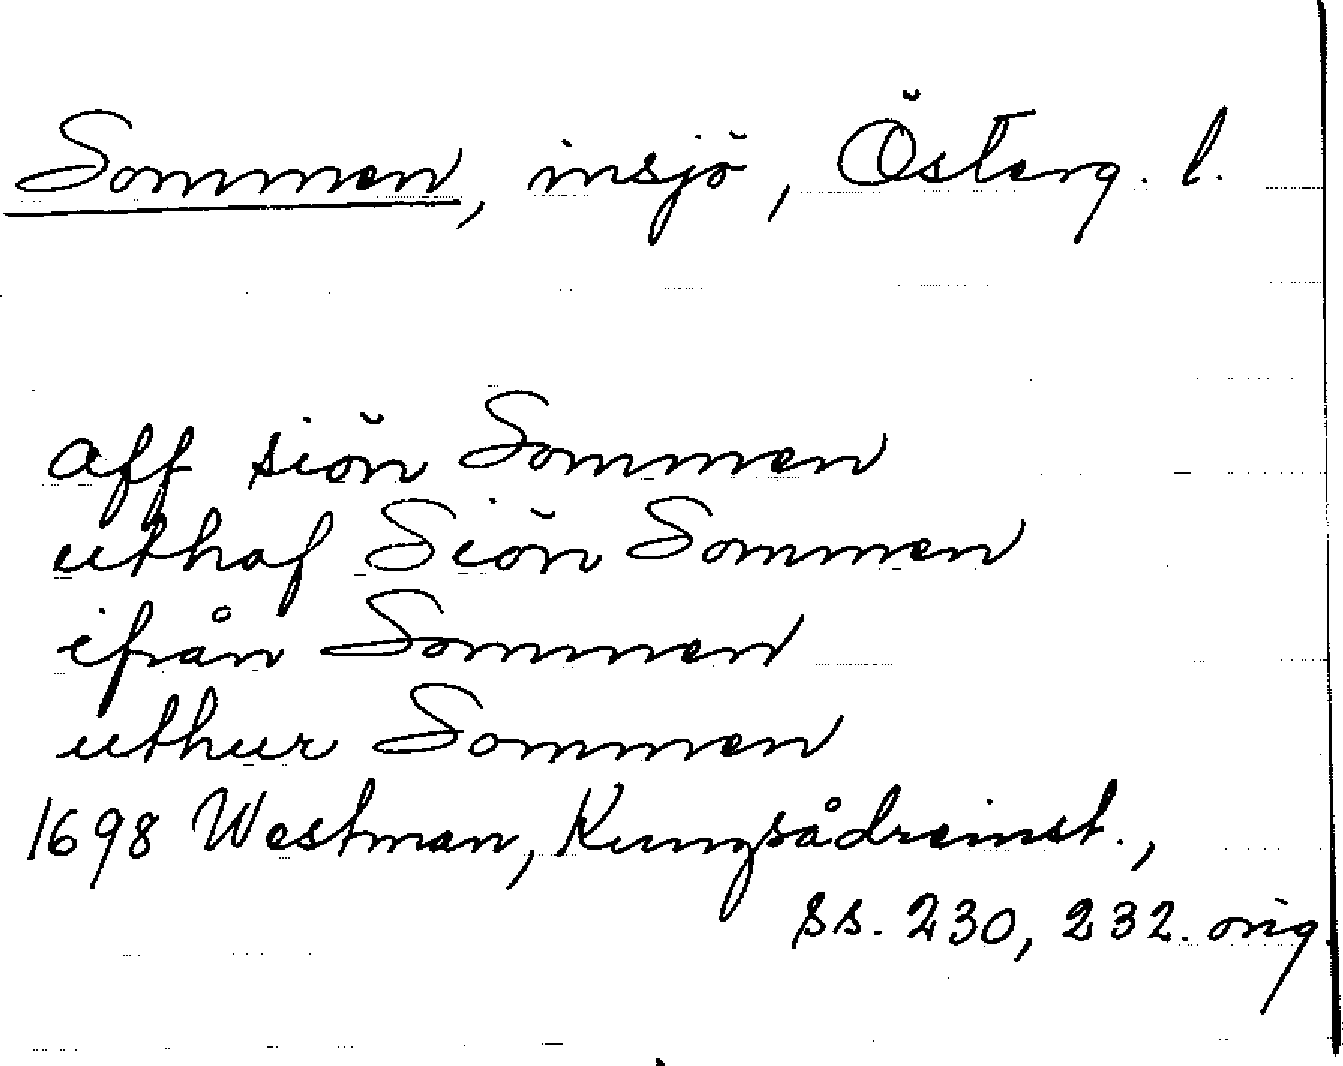 Sommen, insjö, Österg. l.
aff siön Sommen
uthaf Siön Sommen
ifrån Sommen
uthur Sommen
1698 Westman, Kungsådreinst.,
ss. 230, 232. orig.